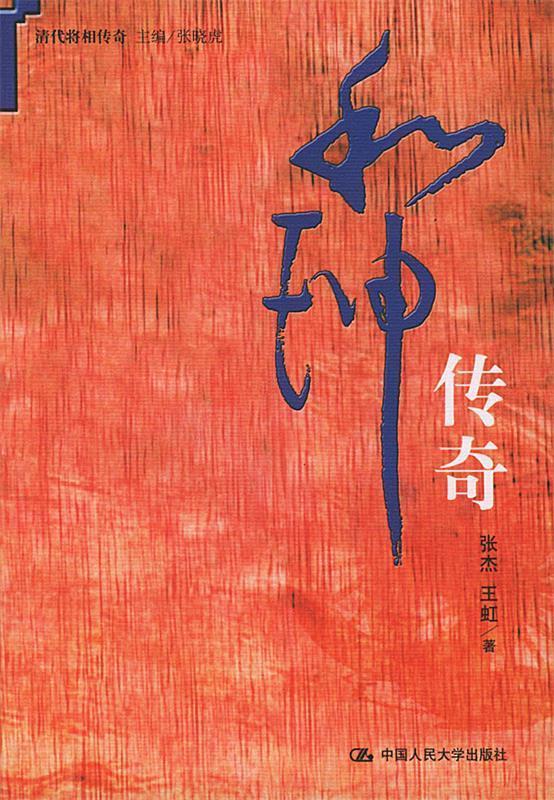 清代将相传奇 主编/张晓虎
和珅
传奇
张杰 王虹/著
中国人民大学出版社